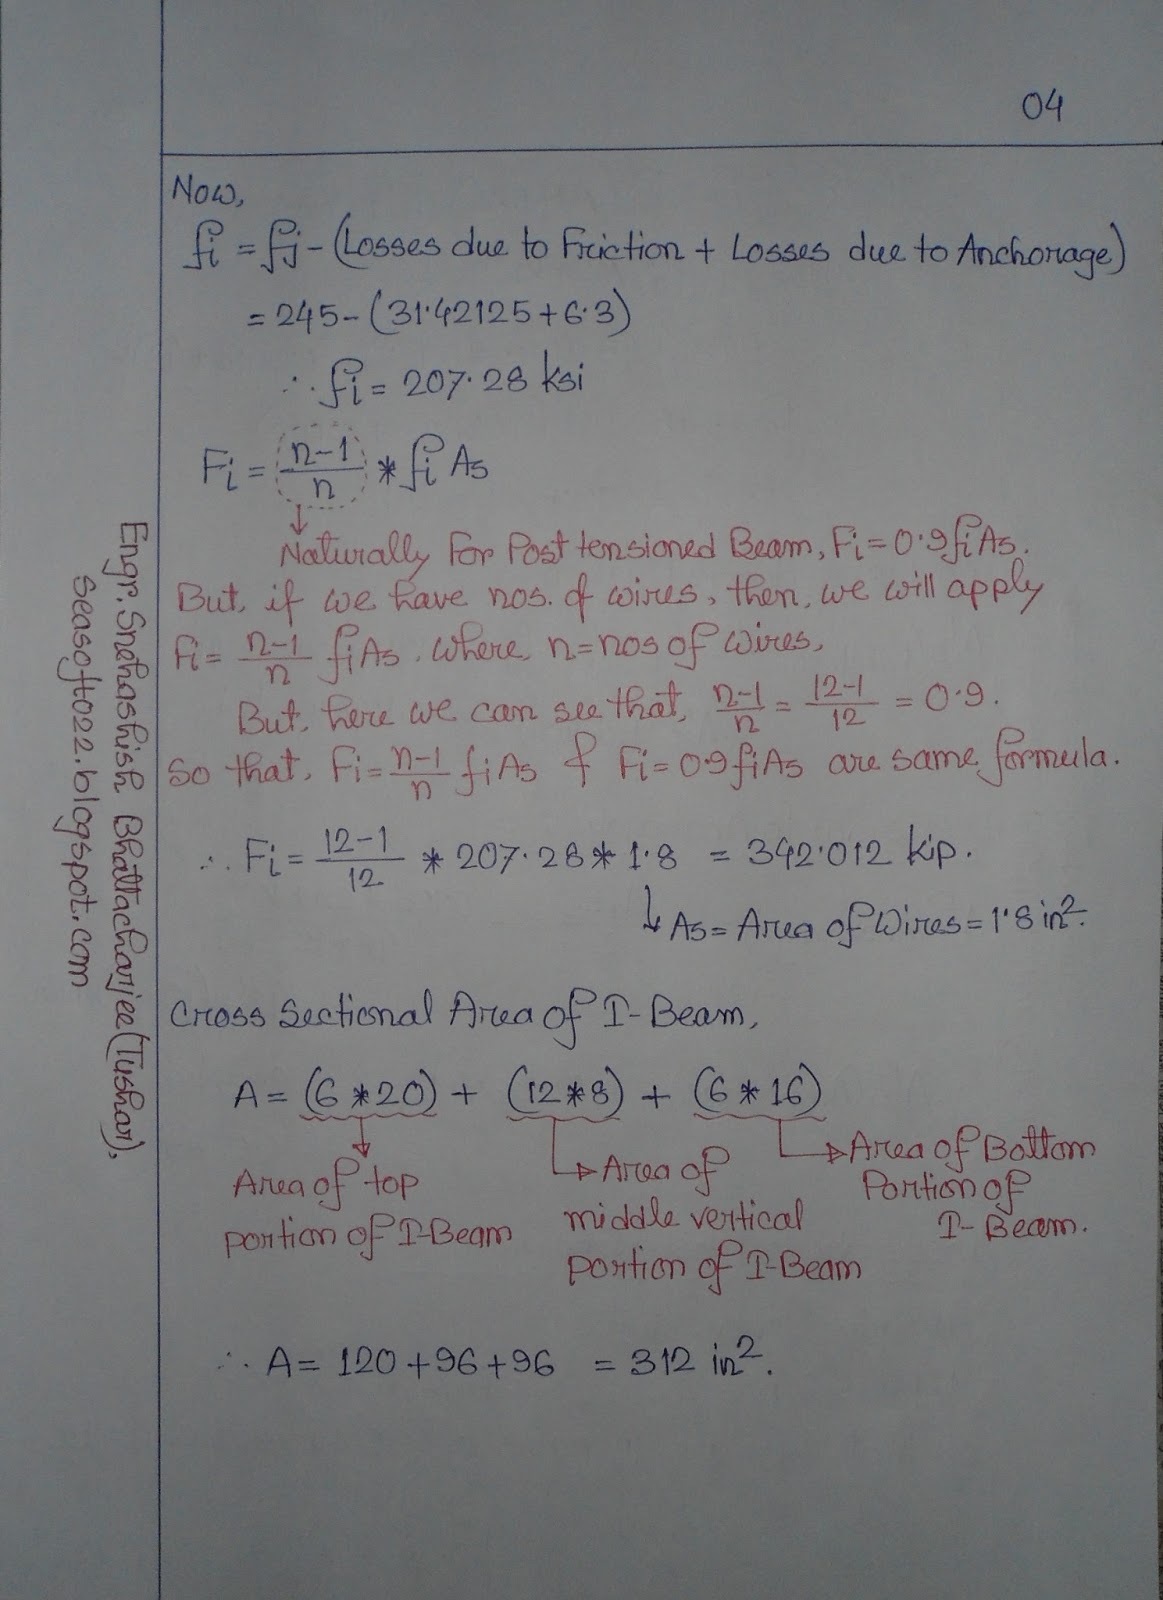 04
Now,
fi = fj - (Losses due to Friction + Losses due to Anchorage)
= 245 - (31.42125 + 6.3)
∴ fi = 207.28 ksi
Fi = (n-1)/n * fi As
Naturally For Post tensioned Beam, Fi = 0.9 fi As.
But, if we have nos. of wires, then, we will apply
Fi = (n-1)/n fi As. where, n = nos of wires,
But, here we can see that, (n-1)/n = (12-1)/12 = 0.9.
So that, Fi = (n-1)/n fi As & Fi = 0.9 fi As are same formula.
∴ Fi = (12-1)/12 * 207.28 * 1.8 = 342.012 kip.
↳ As = Area of Wires = 1.8 in².
Cross Sectional Area of I-Beam,
A = (6*20) + (12*8) + (6*16)
Area of top
portion of I-Beam
Area of
middle vertical
portion of I-Beam
Area of Bottom
Portion of
I-Beam.
∴ A = 120 + 96 + 96 = 312 in².
Engr. Snehashish Bhattacharjee (Tushar).
seasoft022.blogspot.com